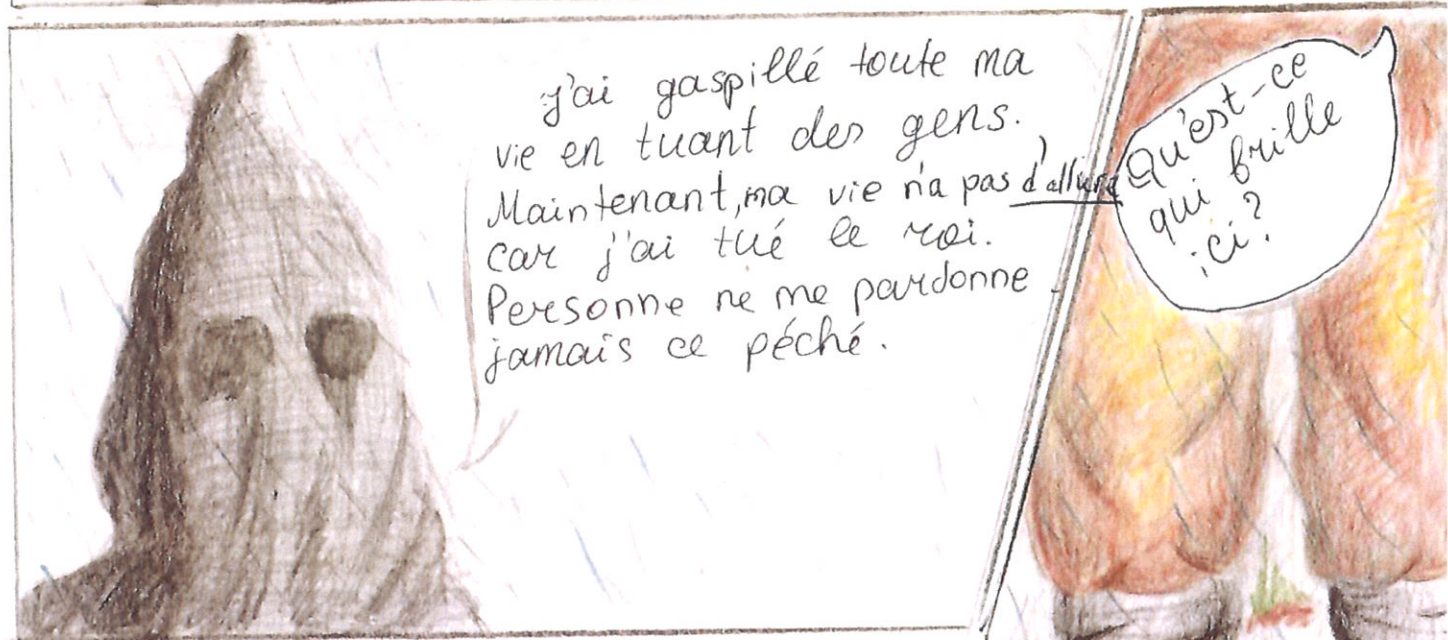 J'ai gaspillé toute ma
vie en tuant des gens.
Maintenant, ma vie n'a pas d'allure,
car j'ai tué le roi.
Personne ne me pardonne
jamais ce péché.
Qu'est-ce
qui brille
ici?